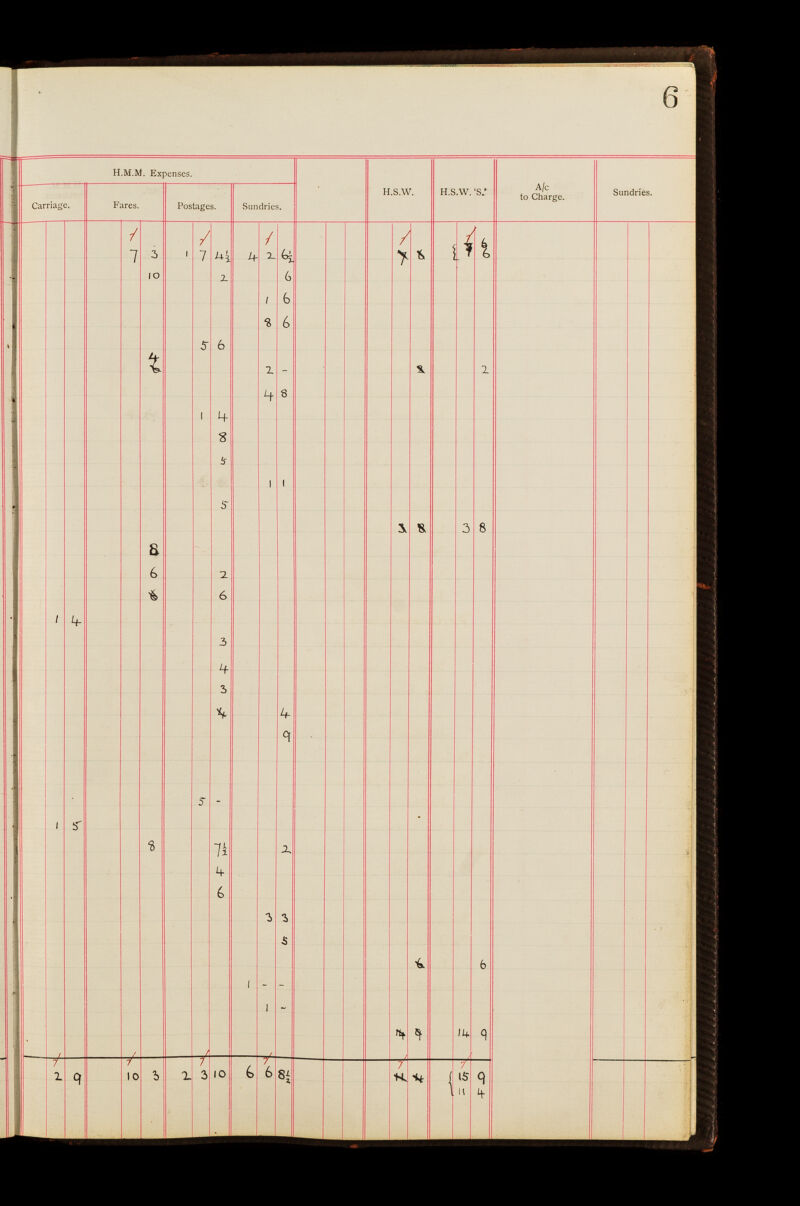 6
H.M.M. Expenses.
Carriage. Fares. Postages. Sundries. H.S.W. H.S.W. 'S.' A/c to Charge. Sundries.
7 3 1 7 4½ 4 2 6½
10 2 6
1 6
8 6
5 6
4 2 - 2
4 8
1 4
8
5
1 1
5
3 8 3 8
8
6 2
6 6
1 4
3
4
3
4 4
9
5 -
1 5
8 7½ 2
4
6
3 3
5
6 6
1 - -
1 -
14 9 14 9
2 9 10 3 2 3 10 6 6 8½ 15 9
11 4